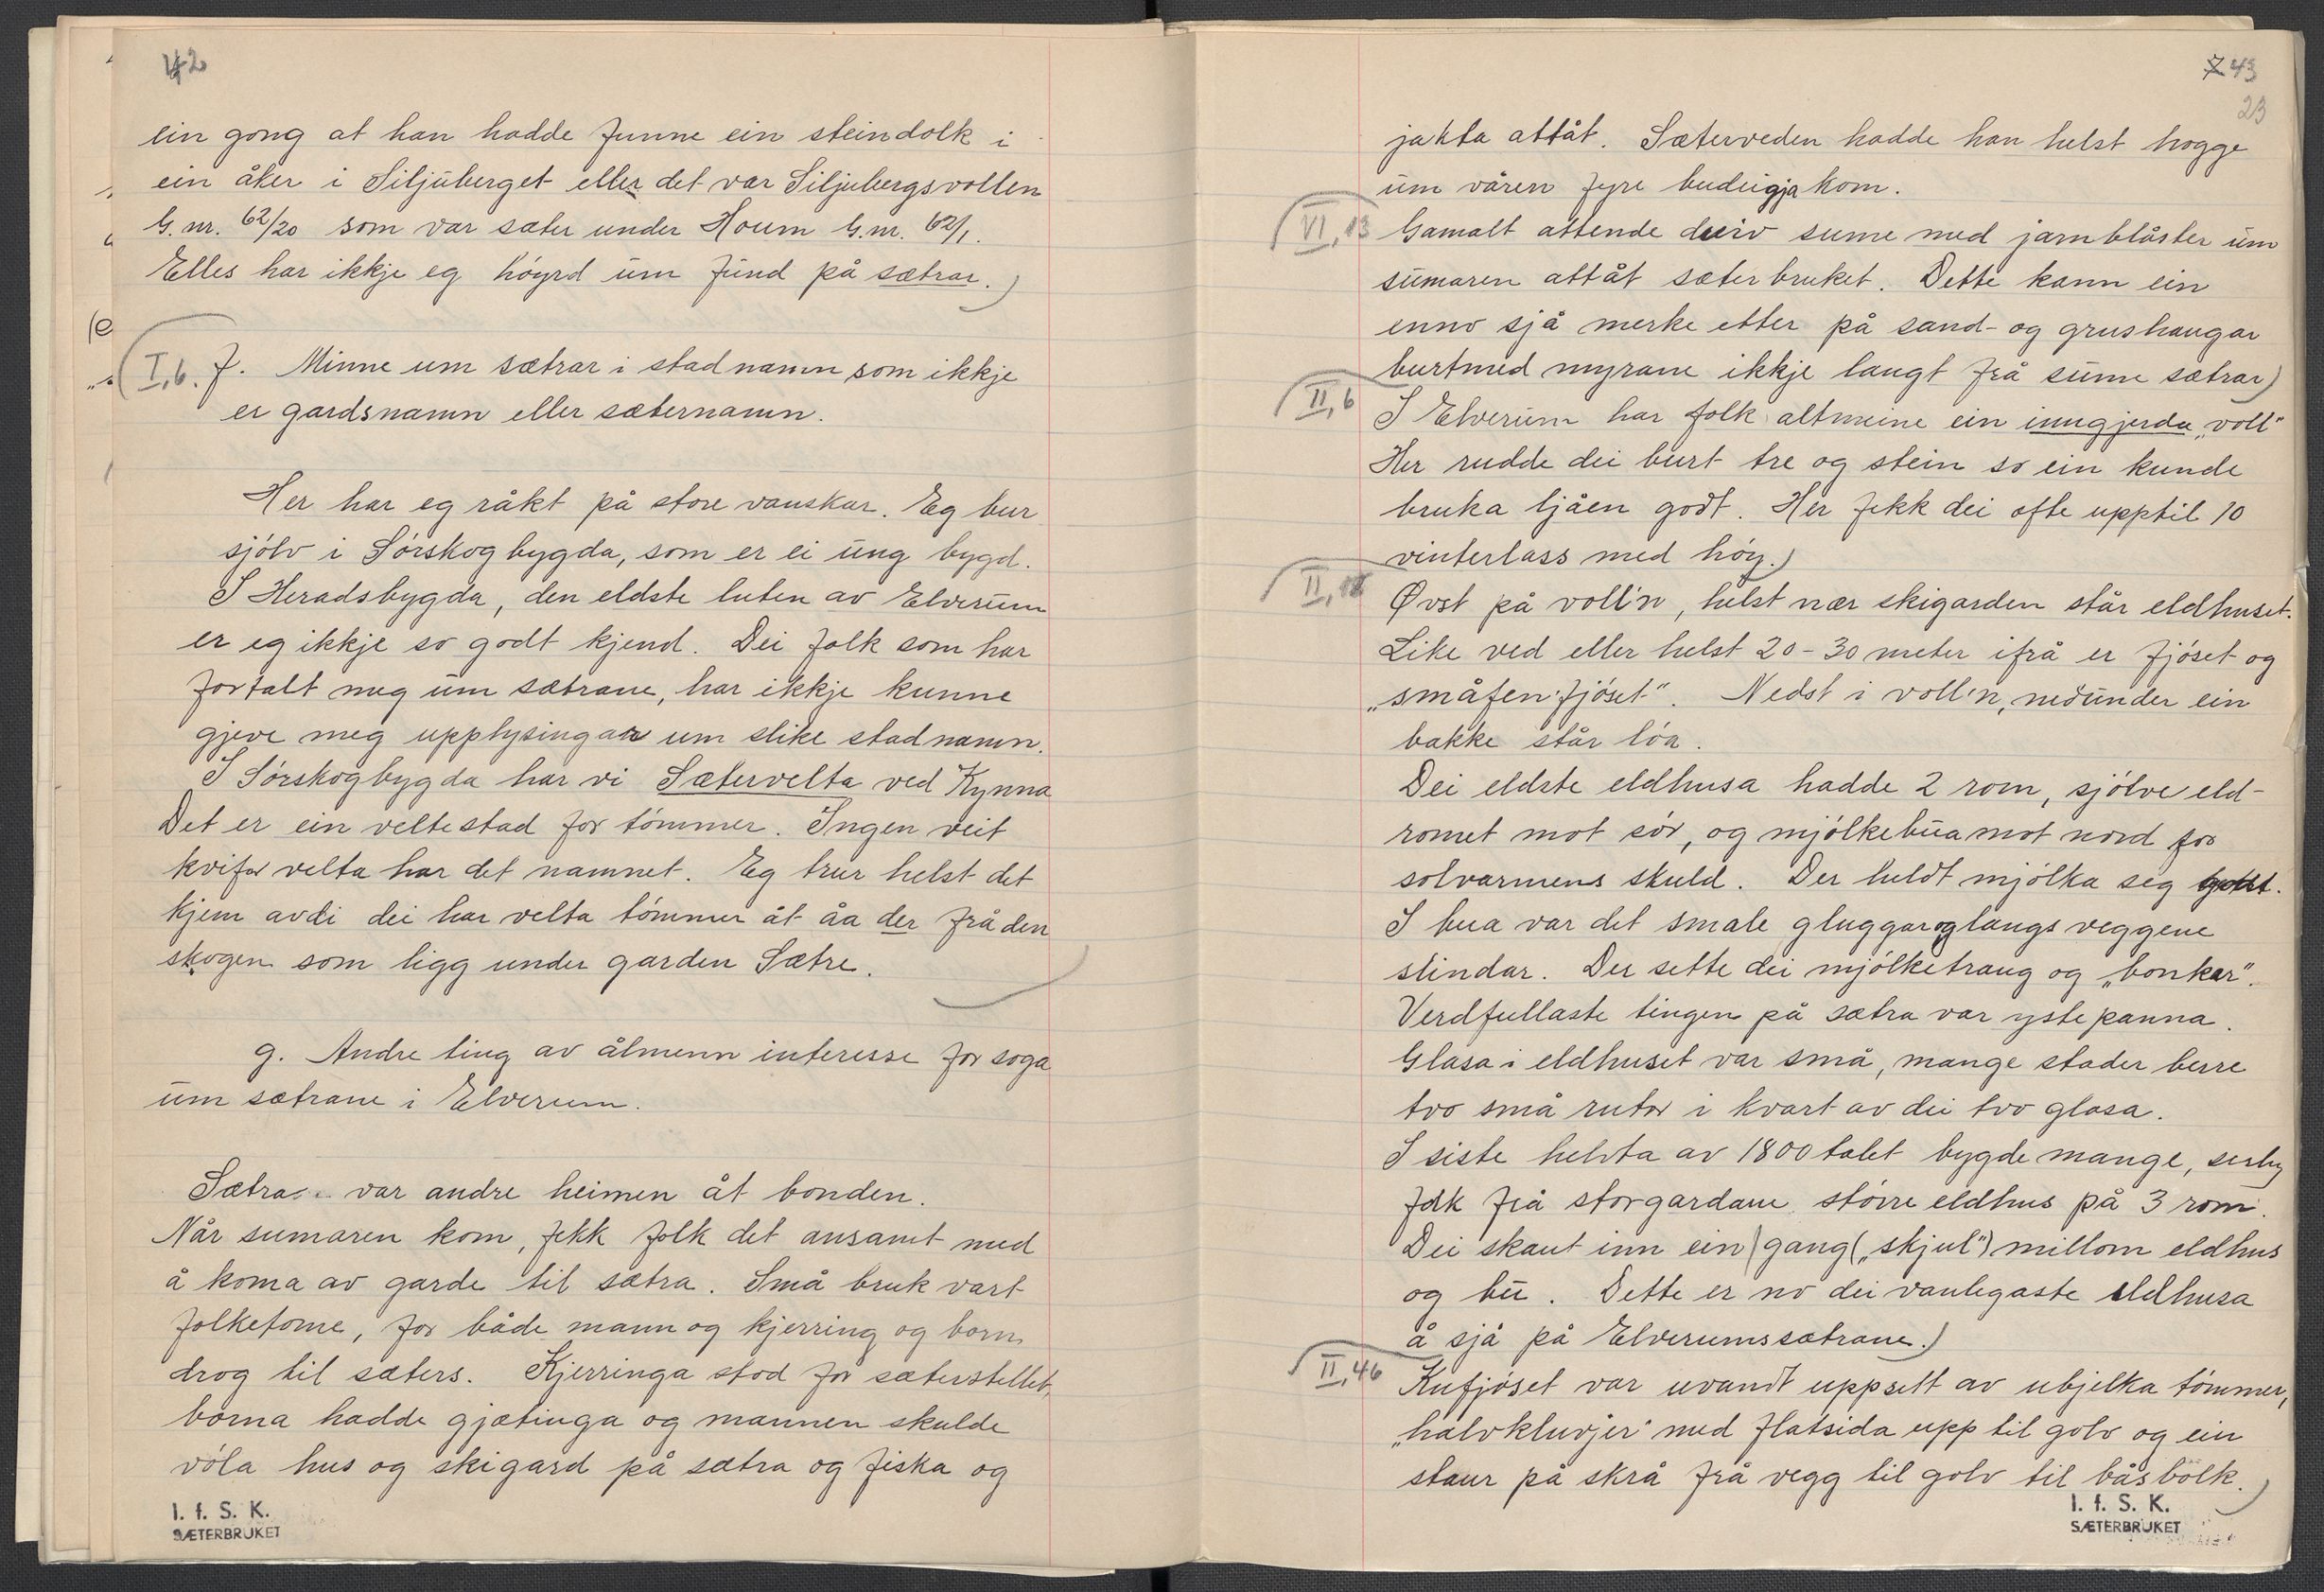 42
ein gong at han hadde funne ein steindolk i
ein åker i Siljuberget eller det var Siljubergsvollen
G. nr. 62/20 som var sæter under Houm G. nr. 62/1.
Elles har ikkje eg höyrd um fund på sætrar.)
I, 6. f. Minne um sætrar i stadnamn som ikkje
er gardsnamn eller sæternamn.
Her har eg råkt på store vanskar. Eg bur
sjölv i Sörskogbygda, som er ei ung bygd.
I Heradsbygda, den eldste luten av Elverum
er eg ikkje so godt kjend. Dei folk som har
fortalt meg um sætrane, har ikkje kunne
gjeve meg upplysingar um slike stadnamn.
I Sörskogbygda har vi Sætervelta ved Kynna
Det er ein veltestad for tömmer. Ingen veit
kvifor velta har det namnet. Eg trur helst det
kjem avdi dei har velta tömmer åt åa der frå den
skogen som ligg under garden Sætre.
g. Andre ting av ålmenn interesse for soga
um sætrane i Elverum.
Sætra var andre heimen åt bonden.
Når sumaren kom, fekk folk det ansamt med
å koma av garde til sætra. Små bruk vart
folketome, for både mann og kjerring og born
drog til sæters. Kjerringa stod for sæterstellet,
borna hadde gjætinga og mannen skulde
völa hus og skigard på sætra og fiska og
I. f. S. K.
SÆTERBRUKET
7 43
23
jakta attåt. Sæterveden hadde han helst hogge
um våren fyre budeigja kom.
VI, 13 Gamalt attende dreiv sume med jarnblåster um
sumaren attåt sæterbruket. Dette kann ein
enno sjå merke etter på sand- og grushaugar
burtmed myrane ikkje langt frå sume sætrar)
II, 6 I Elverum har folk altmeine ein inngjerda „voll"
Her rudde dei burt tre og stein so ein kunde
bruka ljåen godt. Her fekk dei ofte upptil 10
vinterlass med höy.)
II, Øvst på voll'n, helst nær skigarden står eldhuset.
Like ved eller helst 20-30 meter ifrå er fjöset og
„småfen-fjöset". Nedst i voll'n, nedunder ein
bakke står löa.
Dei eldste eldhusa hadde 2 rom, sjölve eld-
romet mot sör, og mjölkebua mot nord for
solvarmens skuld. Der heldt mjölka seg godt.
I bua var det smale gluggar og langs veggene
slindar. Der sette dei mjölketraug og „bonker".
Verdfullaste tingen på sætra var ystepanna.
Glasa i eldhuset var små, mange stader berre
tvo små rutor i kvart av dei tvo glasa.
I siste helvta av 1800 talet bygde mange, serleg
folk frå storgardane större eldhus på 3 rom.
Dei skaut inn ein gang („skjul") millom eldhus
og bu. Dette er no dei vanlegaste eldhusa
å sjå på Elverumssætrane.)
II, 46 Kufjöset var uvandt uppsett av ubjelka tömmer,
„halvkluvjer" med flatsida upp til golv og ein
staur på skrå frå vegg til golv til båsbolk.)
I. f. S. K.
SÆTERBRUKET